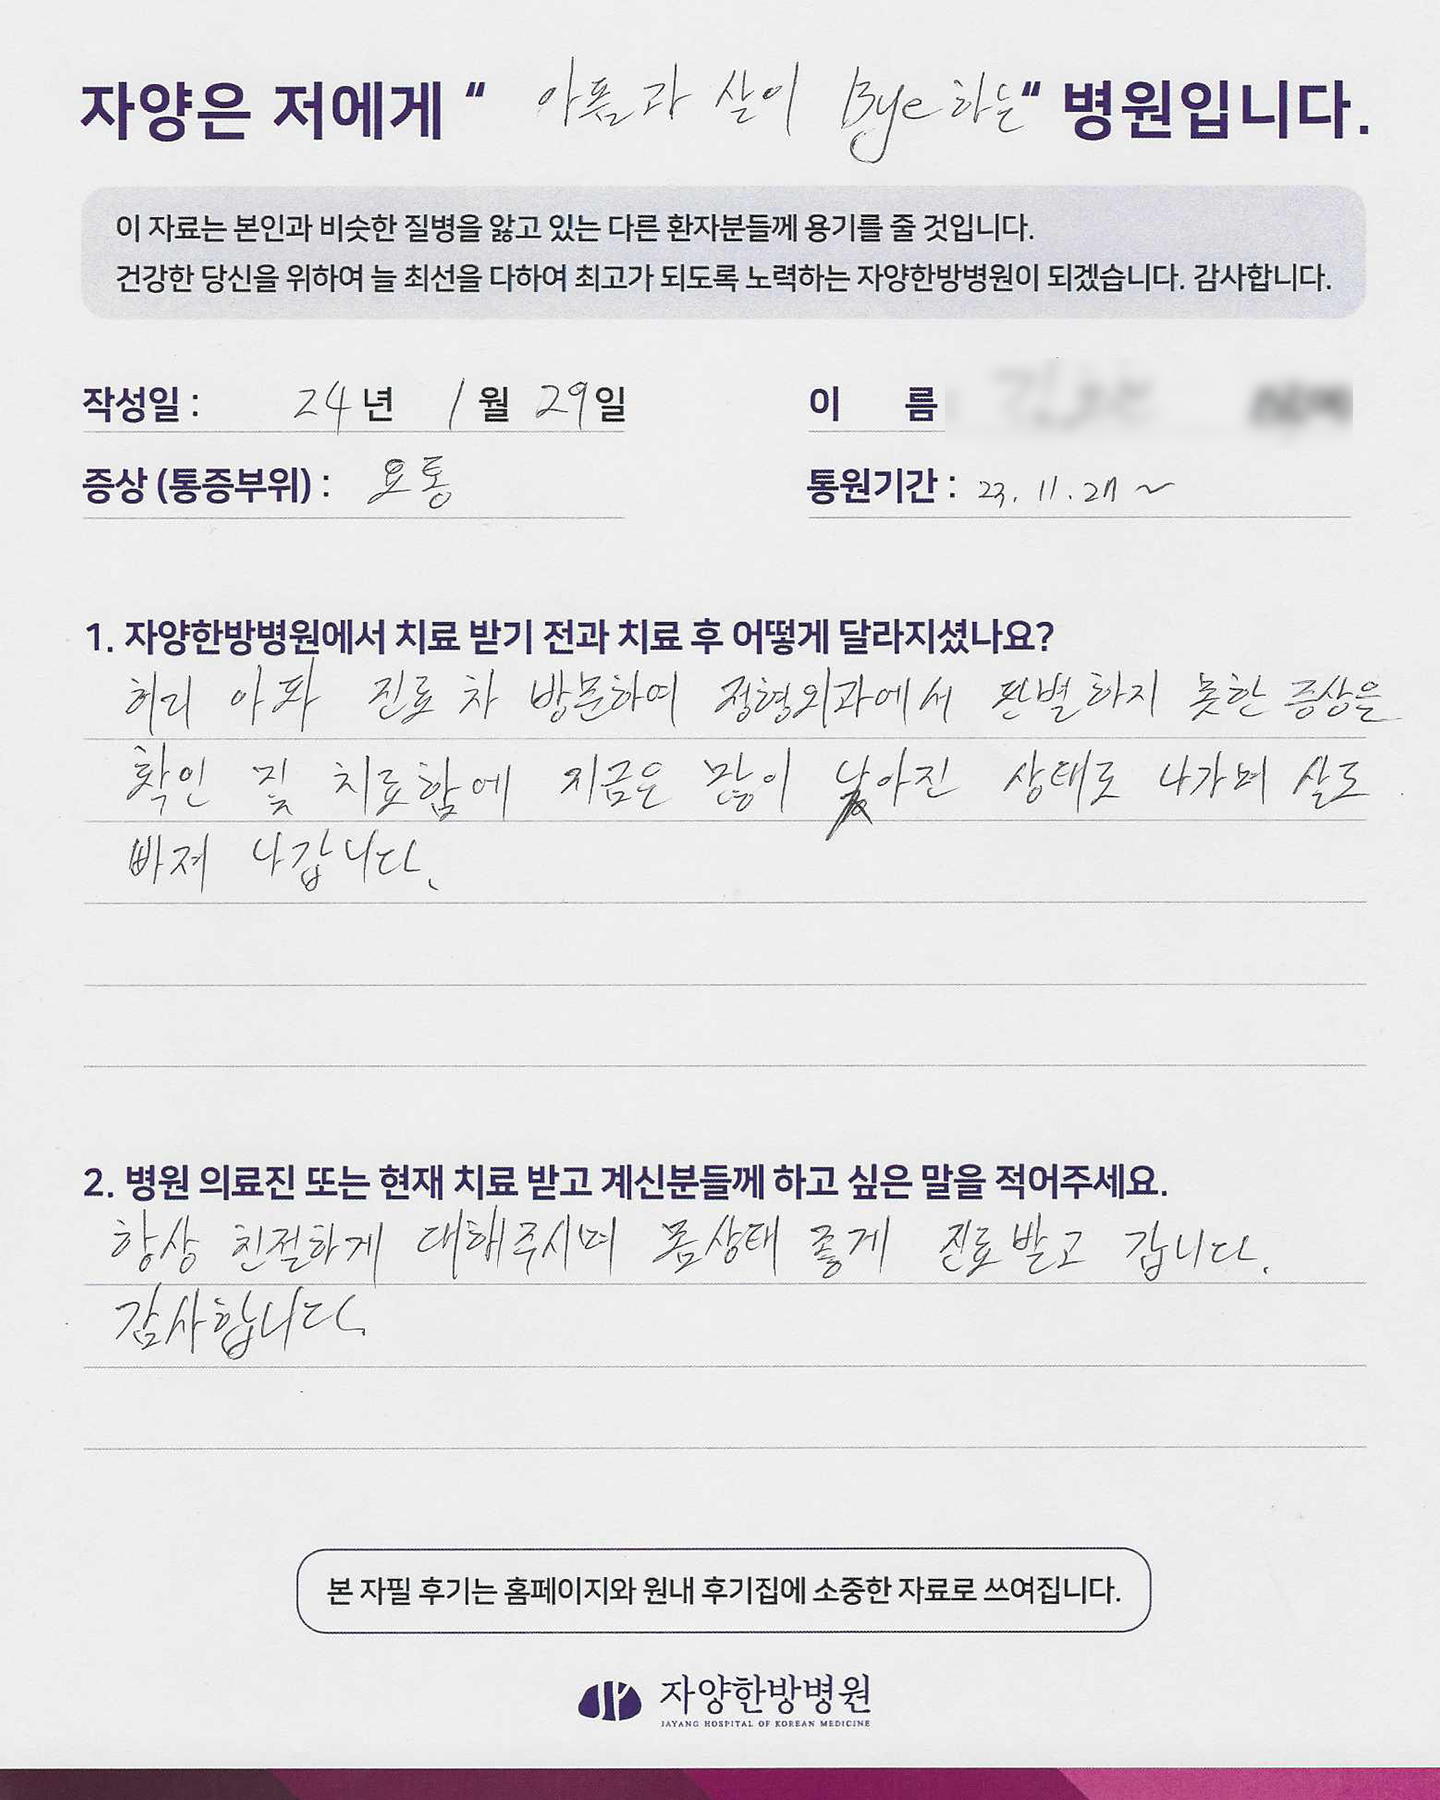 자양은 저에게 " 아픔과 살이 Bye 하는" 병원입니다.
이 자료는 본인과 비슷한 질병을 앓고 있는 다른 환자분들께 용기를 줄 것입니다.
건강한 당신을 위하여 늘 최선을 다하여 최고가 되도록 노력하는 자양한방병원이 되겠습니다. 감사합니다.
작성일 : 24 년 1 월 29 일 이 름
증상 (통증부위) : 요통 통원기간 : 23. 11. ~
1. 자양한방병원에서 치료 받기 전과 치료 후 어떻게 달라지셨나요?
허리 아파 진료 차 방문하여 정형외과에서 판별하지 못한 증상을
확인 및 치료함에 지금은 많이 낳아진 상태로 나가며 살도
빠져 나갑니다.
2. 병원 의료진 또는 현재 치료 받고 계신분들께 하고 싶은 말을 적어주세요.
항상 친절하게 대해주시며 몸상태 좋게 진료받고 갑니다.
감사합니다.
본 자필 후기는 홈페이지와 원내 후기집에 소중한 자료로 쓰여집니다.
자양한방병원
JAYANG HOSPITAL OF KOREAN MEDICINE